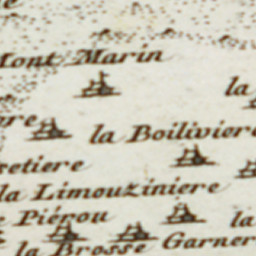 Mont Marin
la
la Boiliviere
la Limouziniere
Piérou
la
la Brosse Garner